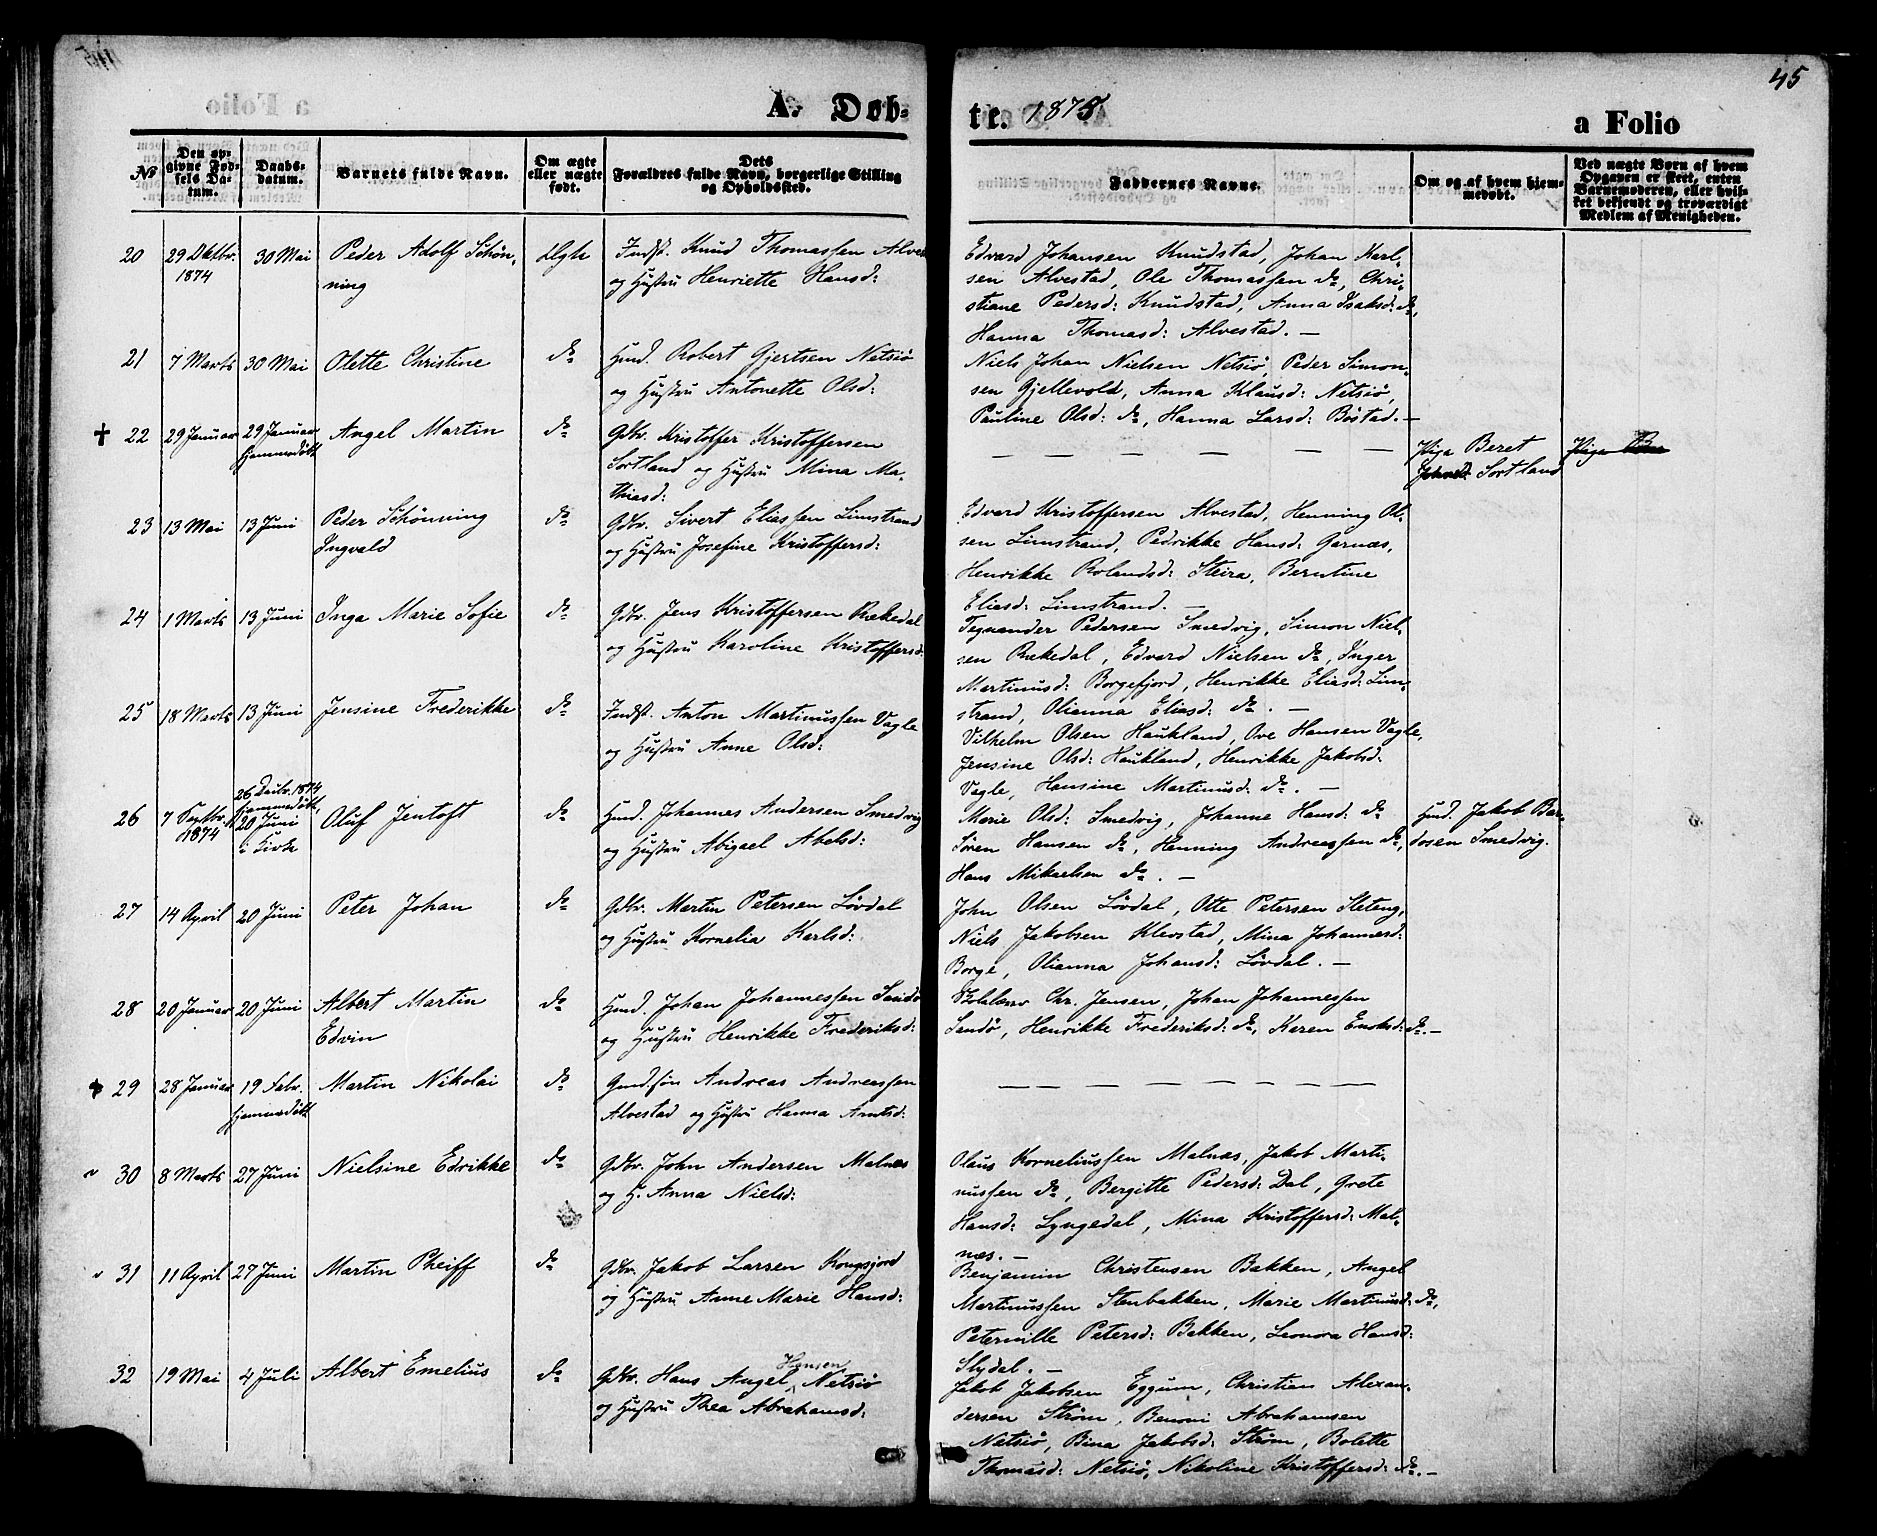 45
A. Døb-
te. 1875
a Folio
No
Den op-
givne Fød-
sels Da-
tum.
Daabs-
datum.
Barnets fulde Navn.
Om ægte
eller uægte
født.
Dets
Forældres fulde Navn, borgerlige Stilling
og Opholdssted.
Faddernes Navne.
Om og af hvem hjem-
medøbt.
Ved uægte Børn af hvem
Opgaven er skeet, enten
Barnemoderen, eller hvil-
ket bekjendt og troværdigt
Medlem af Menigheden.
20
29 Oktbr.
1874
30 Mai
Peder Adolf Schøn-
ning
Ægte
Indst. Knud Thomassen Alves
og Hustru Henriette Hansd:
Edvard Johansen Knudstad, Johan Karl-
sen Alvestad, Ole Thomassen do, Chri-
stiane Pedersd: Knudstad, Anna Isaksd: do,
Hanna Thomasd: Alvestad. —
21
7 Marts
30 Mai
Olette Christine
do
Hmd. Robert Gjertsen Netsiø
og Hustru Antonette Olsd:
Niels Johan Nielsen Netsiø, Peder Simon-
sen Gjellevold, Anna Klausd: Netsiø,
Pauline Olsd: do, Hanna Larsd: Bøstad. —
✝ 22
29 Januar
29 Januar
hjemmedøbt
Angel Martin
do
Gbr. Kristoffer Kristoffersen
Sortland og Hustru Mina Ma-
thiasd:
— — — — — —
Pige Beret
Sortland
Pige
23
13 Mai
13 Juni
Peder Schønning
Ingvald
do
Gbr. Sivert Eliassen Limstrand
og Hustru Josefine Kristoffersd:
Edvard Kristoffersen Alvestad, Henning Ol-
sen Limstrand, Pedrikke Hansd: Garnæs,
Henrikke Rolandsd: Steira, Berntine
Eliasd: Limstrand. —
24
1 Marts
13 Juni
Inga Marie Sofie
do
Gbr. Jens Kristoffersen Rækedal
og Hustru Karoline Kristoffersd:
Tegnander Pedersen Smedvig, Simon Niel-
sen Rækedal, Edvard Nielsen do, Inger
Martinusd: Borgefjord, Henrikke Eliasd: Lim-
strand, Olianna Eliasd: do. —
25
18 Marts
13 Juni
Jensine Frederikke
do
Indst. Anton Martinussen Vagle
og Hustru Anne Olsd:
Vilhelm Olsen Haukland, Ove Hansen Vagle,
Jensine Olsd: Haukland, Henrikke Jakobsd:
Vagle, Hansine Martinusd: do. —
26
7 Septbr.
1874
26 Decbr. 1874
hjemmedøbt,
20 Juni
i Kirke
Oluf Jentoft
do
Hmd. Johannes Andersen Smedvig
og Hustru Abigael Abelsd:
Marie Olsd: Smedvig, Johanne Hansd: do
Søren Hansen do, Henning Andreassen do,
Hans Mikaelsen do. —
Hmd. Jakob Bar-
dosen Smedvig.
27
14 April
20 Juni
Peter Johan
do
Gbr. Martin Petersen Løvdal
og Hustru Kornelia Karlsd:
John Olsen Løvdal, Otte Petersen Sleteng,
Niels Jakobsen Klevstad, Mina Johannesd:
Borge, Olianna Johansd: Løvdal. —
28
20 Januar
20 Juni
Albert Martin
Edvin
do
Hmd. Johan Johannessen Sandø
og Hustru Henrikke Frederiksd:
Chr. Jensen, Johan Johannessen
Sandø, Henrikke Frederiksd: do, Karen Enoksd: do. —
✝ 29
28 Januar
19 Febr.
hjemmedøbt
Martin Nikolai
do
Gmd.søn Andreas Andreassen
Alvestad og Hustru Hanna Arntsd:
— — — — — — —
30
8 Marts
27 Juni
Nielsine Edrikke
do
Gbr. John Andersen Malnæs
og H. Anna Nielsd:
Olaus Korneliussen Malnæs, Jakob Marti-
nussen do, Bergitte Pedersd: Dal, Grete
Hansd: Lyngedal, Mina Kristoffersd: Mal-
næs. —
31
11 April
27 Juni
Martin Pheiff
do
Gbr. Jakob Larsen Kongsjord
og Hustru Anne Marie Hansd:
Benjamin Christensen Bakken, Angel
Martinussen Stenbakken, Marie Martinusd: do,
Petermille Petersd: Bakken, Leonora Hansd:
Slydal. —
32
19 Mai
4 Juli
Albert Emelius
do
Hansen
Gbr. Hans Angel Netsiø
og Hustru Thea Abrahamsd:
Jakob Jakobsen Eggum, Christian Alexan-
dersen Strøm, Benoni Abrahamsen
Netsiø, Bina Jakobsd: Strøm, Bolette
Thomasd: Netsiø, Nikoline Kristoffersd: do. —